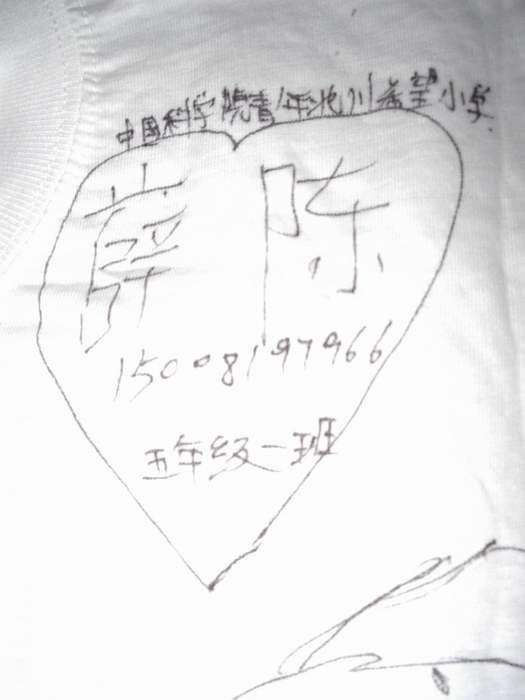 中国科学院青年北川希望小学
薛陈
15008197966
五年级一班